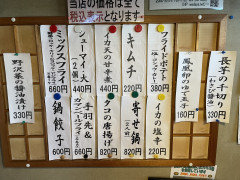 当店の価格は全て
税込表示となります。
長芋の千切り
(わさび醤油)
330円
鳳凰卵のゆで玉子
160円
フライドポテト
380円
イカの塩辛
220円
キムチ
320円
寄せ鍋
820円
イカ天の塩辛煮
440円
タコの唐揚げ
820円
シューマイ・大
440円
手羽先&
600円
ミックスフライ
660円
鍋餃子
600円
野沢菜の醤油漬け
330円